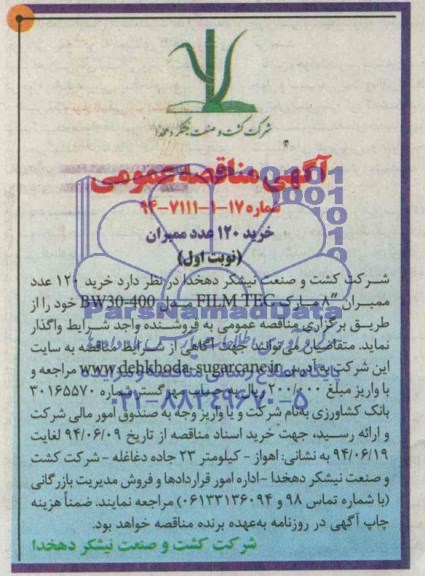 شرکت کشت و صنعت نیشکر دهخدا
آگهی مناقصه عمومی
شماره ۱۷-۱-۷۱۱۱-۹۴
خرید ۱۲۰ عدد ممبران
(نوبت اول)
شرکت کشت و صنعت نیشکر دهخدا در نظر دارد خرید ۱۲۰ عدد
ممبران "۸ مارک FILM TEC مدل BW30-400 خود را از
طریق برگزاری مناقصه عمومی به فروشنده واجد شرایط واگذار
نماید. متقاضیان می‌توانند جهت آگاهی از شرایط مناقصه به سایت
این شرکت به آدرس www.dehkhoda-sugarcane.ir مراجعه و
با واریز مبلغ ۲۰۰/۰۰۰ ریال به حساب مهرگستر شماره ۳۰۱۶۵۵۷۰
بانک کشاورزی به‌نام شرکت و یا واریز وجه به صندوق امور مالی شرکت
و ارائه رسید، جهت خرید اسناد مناقصه از تاریخ ۹۴/۰۶/۰۹ لغایت
۹۴/۰۶/۱۹ به نشانی: اهواز - کیلومتر ۲۳ جاده دغاغله - شرکت کشت
و صنعت نیشکر دهخدا -اداره امور قراردادها و فروش مدیریت بازرگانی
(با شماره تماس ۹۸ و ۰۶۱۳۳۱۳۶۰۹۴) مراجعه نمایند. ضمناً هزینه
چاپ آگهی در روزنامه به‌عهده برنده مناقصه خواهد بود.
شرکت کشت و صنعت نیشکر دهخدا
ParsNamadData
۰۲۱-۸۸۳۴۹۶۷۰-۵